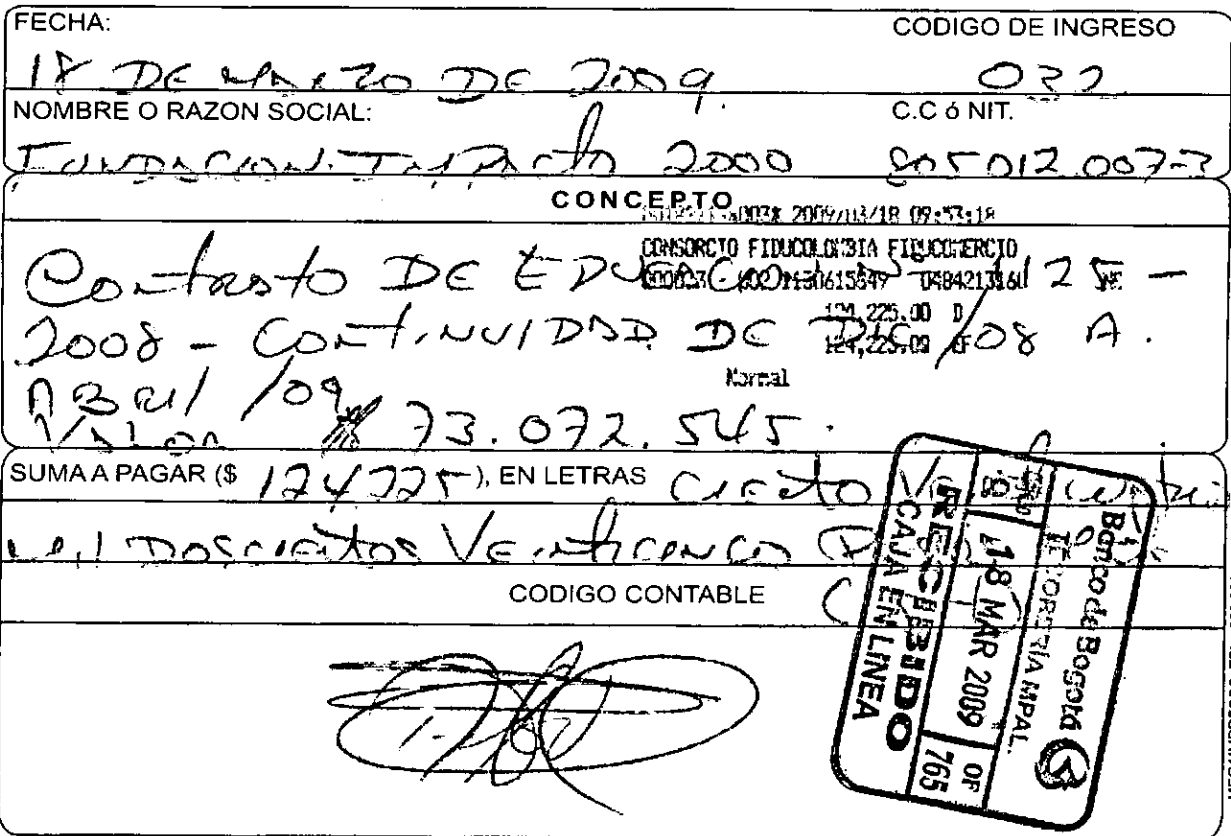 FECHA: CODIGO DE INGRESO
18 DE MARZO DE 2009. 032
NOMBRE O RAZON SOCIAL: C.C ó NIT.
FUNDACION IMPACTO 2000 805012.007-3
CONCEPTO
2009/03/18 09:53:18
CONSORCIO FIDUCOLOMBIA FIDUCOMERCIO
Contrato DE EDUCACION 1125 -
124,225.00 D
2008 - CONTINUIDAD DE DIC/08 A.
124,225.00 EF
Normal
ABRIL /09
VALOR $ 73.072.545.
SUMA A PAGAR ($ 124225), EN LETRAS Ciento Veinticuatro
mil DOSCIENTOS VEINTICINCO
CODIGO CONTABLE
Banco de Bogotá
TESORERÍA MPAL.
18 MAR 2009 OF 765
RECIBIDO
CAJA EN LINEA